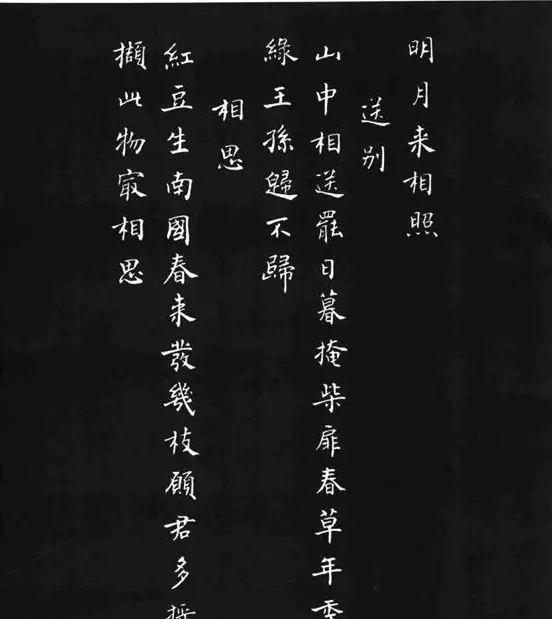 明月来相照
送别
山中相送罷日暮掩柴扉春草年秊
綠王孫歸不歸
相思
紅豆生南國春来發幾枝願君多採
擷此物㝡相思